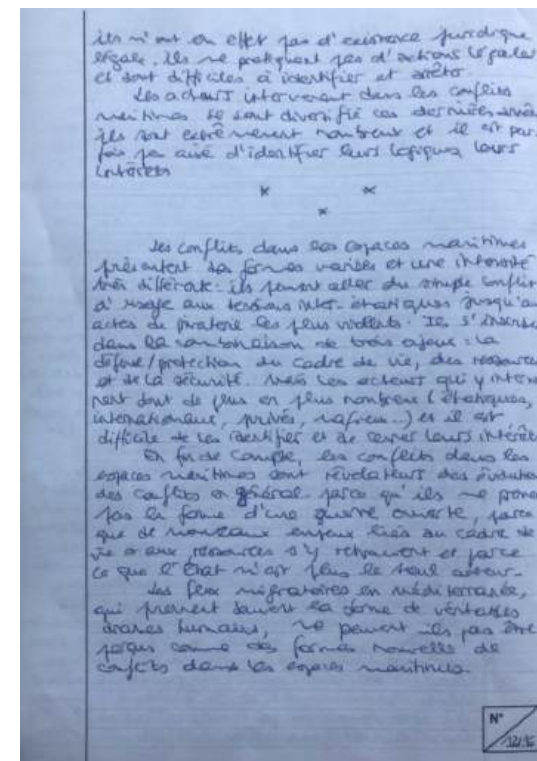 ils n'ont en effet pas d'existence juridique
légale. Ils ne pratiquent pas d'actions légales
et sont difficiles à identifier et arrêter.
Les acteurs intervenant dans les conflits
maritimes se sont diversifié ces dernières années
ils sont extrêmement nombreux et il est par-
fois peu aisé d'identifier leurs logiques, leurs
intérêts
* *
*
Les conflits dans les espaces maritimes
présentent des formes variées et une intensité
très différente : ils peuvent aller du simple conflit
d'usage aux tensions inter-étatiques jusqu'au
actes de piraterie les plus violents. Ils s'inscrive
dans la combinaison de trois enjeux : la
défense/protection du cadre de vie, des ressources
et de la sécurité. Mais les acteurs qui y intervie
nent sont de plus en plus nombreux (étatiques,
internationaux, privés, mafieux...) et il est
difficile de les identifier et de cerner leurs intérêt
En fin de compte, les conflits dans les
espaces maritimes sont révélateurs des évolution
des conflits en général parce qu'ils ne prenne
pas la forme d'une guerre ouverte, parce
que de nouveaux enjeux liés au cadre de
vie et aux ressources s'y retrouvent et parce
ce que l'Etat n'est plus le seul acteur.
Les flux migratoires en méditerranée,
qui prennent souvent la forme de véritables
drames humains, ne peuvent ils pas être
perçus comme des formes nouvelles de
conflits dans les espaces maritimes.
N°